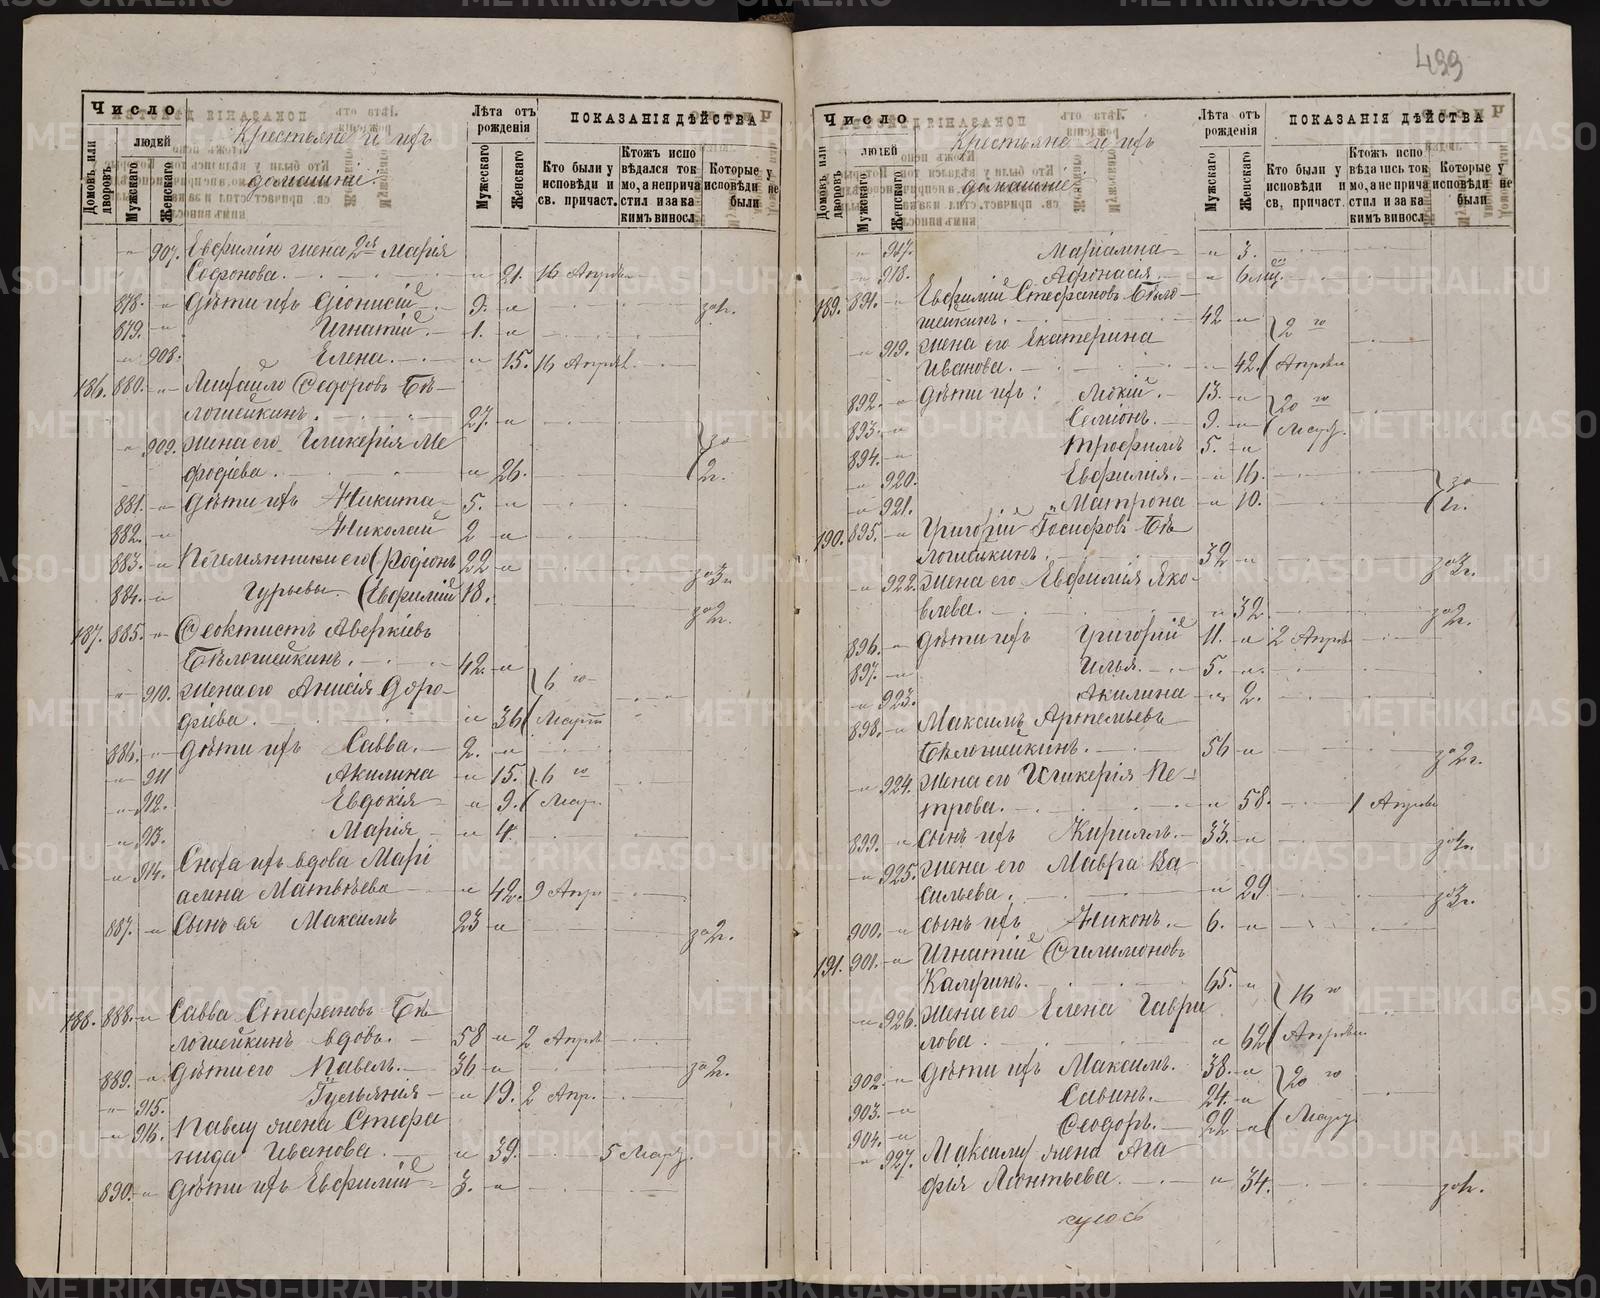 499
Число
людей
Домовъ или дворовъ.
Мужскаго
Женскаго
Крестьяне и ихъ
домашніе.
Лѣта отъ рожденія
Мужескаго
Женскаго
ПОКАЗАНІЯ ДѢЙСТВА
Кто были у исповѣди и св. причаст.
Ктожъ исповѣдался токмо, а не причастил и за каким винносл.
Которые у исповѣди не были
" 907. Евфимію жена 2я Марія
Софонова. " 21. 16 Апрѣля
878. " Дѣти ихъ Діонисій 9. " за 1г.
879. " Игнатій. 1. "
" 908. Елена. " 15. 16 Апрѣл.
186. 880. " Михаило Ѳедоровъ Бѣ-
логшейкинъ. 27. "
" 909. жена его Гликерія Ме
фодіева. " 26. за 2г.
881. " Дѣти ихъ Никита 5. "
882. " Николай 2 "
883. " Племянники его Родіонъ 22 " за 3г.
884. " Гурьевы. Евфимій 18. за 2г.
187. 885. " Ѳеоктистъ Аверкіевъ
Бѣлошейкинъ. 42. "
" 910. жена его Анисія Доро-
фіева. " 36 6 го Март
886. " Дѣти ихъ Савва. 2. "
" 911 Акилина " 15. 6 го
" 912. Евдокія " 9. Мар.
" 913. Марія " 4.
" 914. Сноха ихъ вдова Марі
амна Матвѣева " 42. 9 Апр
887. " Сынъ ея Максимъ 23 " за 2г.
188. 888. " Савва Стефановъ Бѣ-
лошейкинъ вдовъ. 58 " 2 Апрѣл
889. " Дѣти его Павелъ. 36 " за 2г.
" 915. Гульянія " 19. 2 Апр.
" 916. Павлу жена Стефа
нида Иванова. " 39. 5 Мар.
890. " Дѣти ихъ Евфимій 3. "
Число
людей
Домовъ или дворовъ.
Мужскаго
Женскаго
Крестьяне и ихъ
домашніе
Лѣта отъ рожденія
Мужескаго
Женскаго
ПОКАЗАНІЯ ДѢЙСТВА
Кто были у исповѣди и св. причаст.
Ктожъ исповѣдался токмо, а не причастил и за каким винносл.
Которые у исповѣди не были
" 917. Маріамна " 3.
" 918. Афонасія. " 6 мц.
189. 891. " Евфимій Стефановъ Бѣло-
шейкинъ. 42 " 2 го
" 919. жена его Екатерина
Иванова. " 42. Апрѣля
892. " Дѣти ихъ: Мокій. 13. " 20 го
893. " Семіонъ. 9. " Мар.
894. " Трофимъ 5. "
" 920. Евфимія. " 16. за
" 921. Матрона " 10. 1г.
190. 895. " Григорій Іосифовъ Бѣ-
логшейкинъ. 32 " за 3г.
" 922. жена его Евфимія Яко-
влева. " 32. за 2г.
896. " Дѣти ихъ Григорій 11. " 2 Апрѣл
897. " Илья. 5. "
" 923. Акилина " 2.
898. " Максимъ Артемьевъ
Бѣлошейкинъ. 56 " за 2г.
" 924. жена его Гликерія Пе-
трова. " 58. 1 Апрѣля
899. " Сынъ ихъ Кириллъ. 33. " за 1г.
" 925. жена его Мавра Ва-
сильева. " 29 за 3г.
900. " Сынъ ихъ Никонъ. 6. "
191. 901. " Игнатій Филимоновъ
Калугинъ. 65. " 16 го
" 926. жена его Елена Гаври
лова. " 62 Апрѣля
902. " Дѣти ихъ Максимъ. 38. " 20 го
903. " Савинъ. 24. "
904. " Ѳеодоръ. 22 " Мар.
" 927. Максиму жена Ага
фья Леонтьева. " 34. за 1г.
METRIKI.GASO-URAL.RU